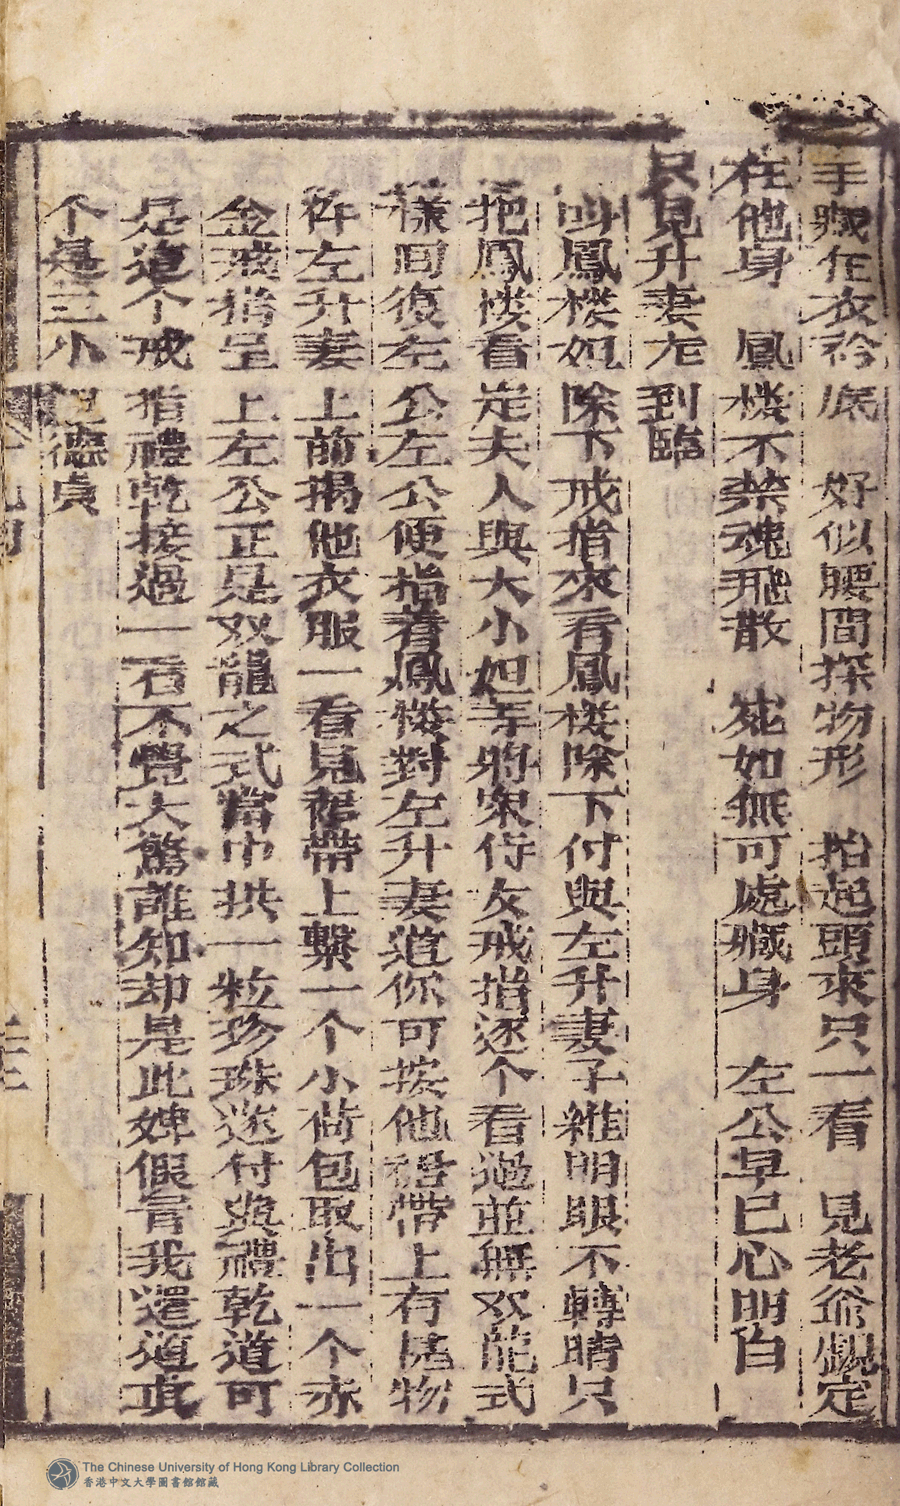 手藏在衣衿底　好似腰間探物形　抬起頭來只一看　見老爺覌定
在他身　鳳楼不禁魂飛散　宛如無可處藏身　左公早已心明白
只見升妻左到臨
叫鳳楼妲除下戒指來看鳳楼除下付與左升妻子雒明眼不轉睛只
把鳳楼看定夫人與大小妲等將衆侍女戒指逐个看過並無双龍式
樣回復左公左公便指着鳳楼對左升妻道你可按他裙帶上有甚物
件左升妻上前揭他衣服一看見裙帶上繫一个小荷包取出一个赤
金戒指呈上左公正是双龍之式當中拱一粒珍珠遂付與禮乾道可
是這个戒指禮乾接過一看不覺大驚誰知却是此婢假冒我還道眞
个是三小妲德貞
二十三
The Chinese University of Hong Kong Library Collection
香港中文大學圖書館館藏